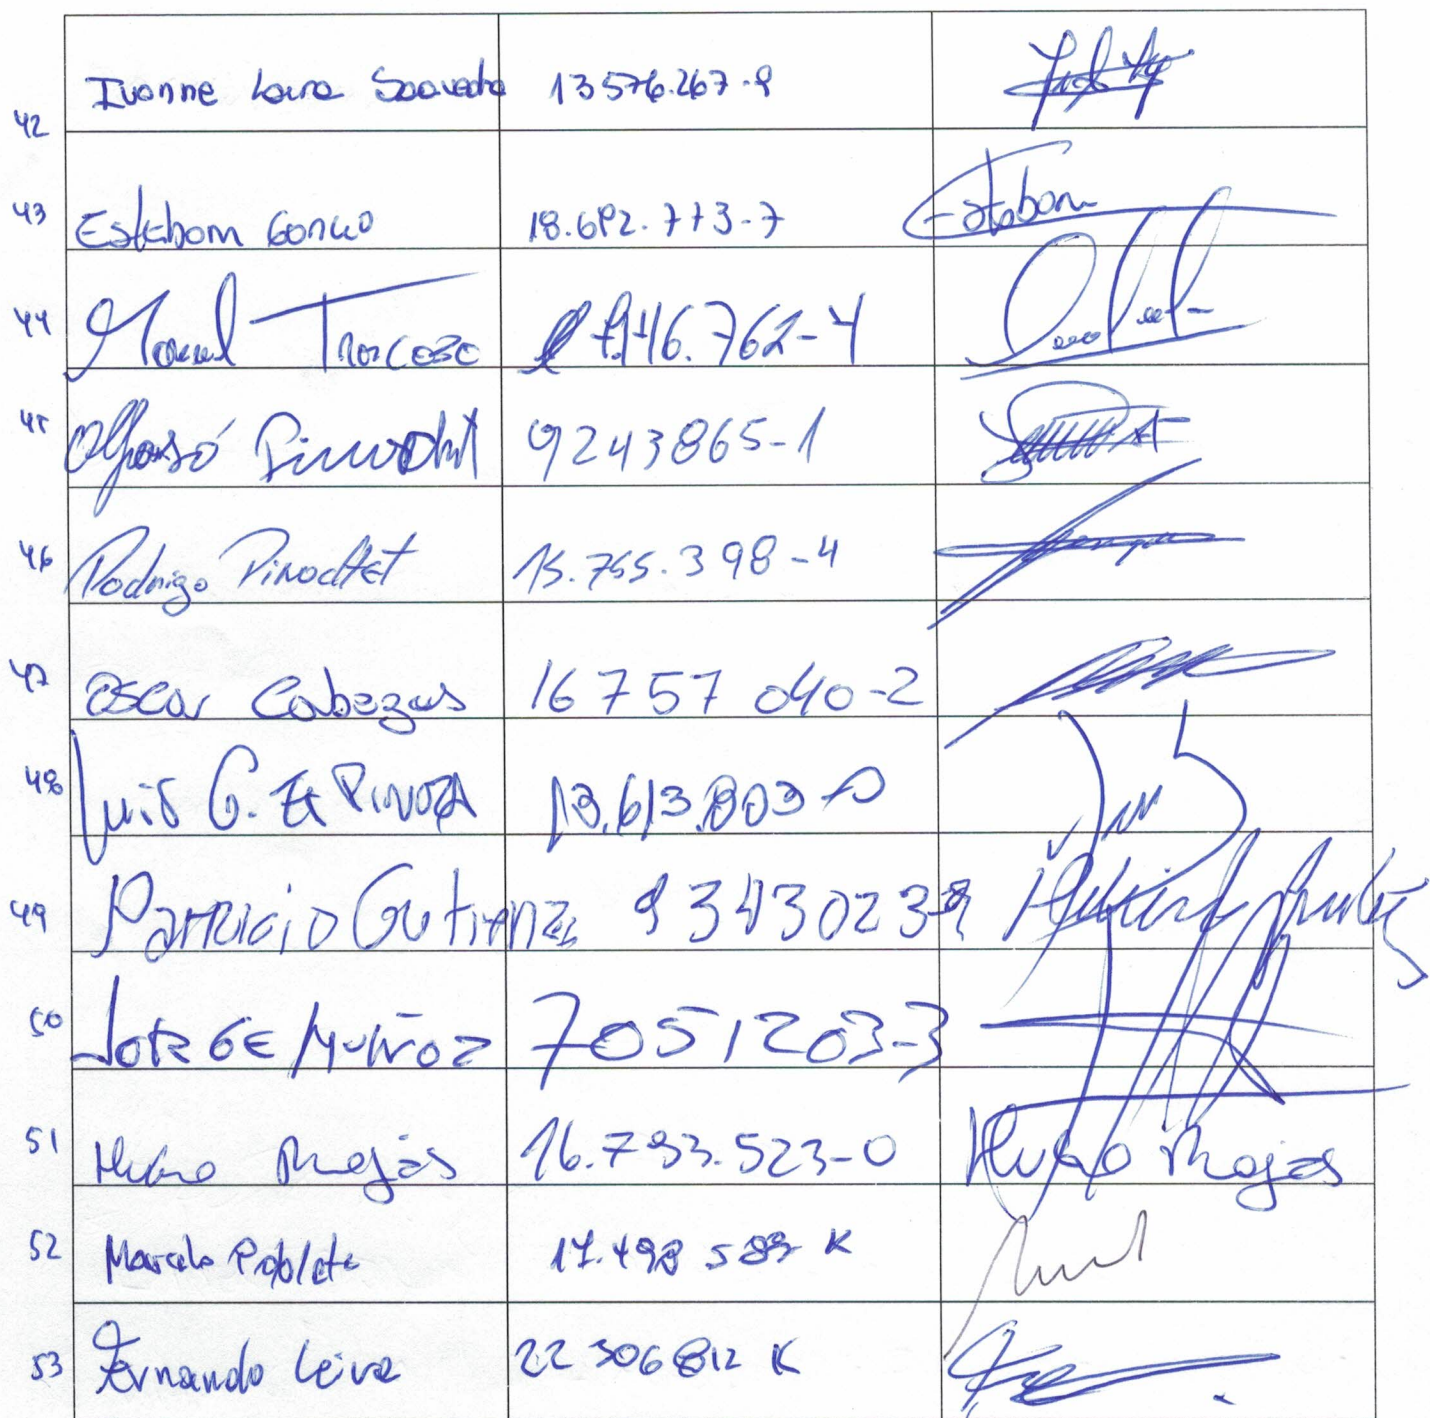 42 Ivonne Lara Saavedra 13576.267-9
43 Esteban 18.692.773-7 Esteban
44 Manuel Troncoso 7.946.762-4
45 Alfonso Pinochet 9243865-1
46 Rodrigo Pinochet 15.755.398-4
47 Oscar Cabezas 16 757 040-2
48 Luis G. Espinoza 13.613.803-
49 Patricio Gutierrez 9343023-9
50 Jorge Muñoz 7051203-3
51 Hugo Rojas 16.793.523-0 Hugo Rojas
52 Marcelo Poblete 17.498 589 K
53 Fernando Leiva 22 306 812 K